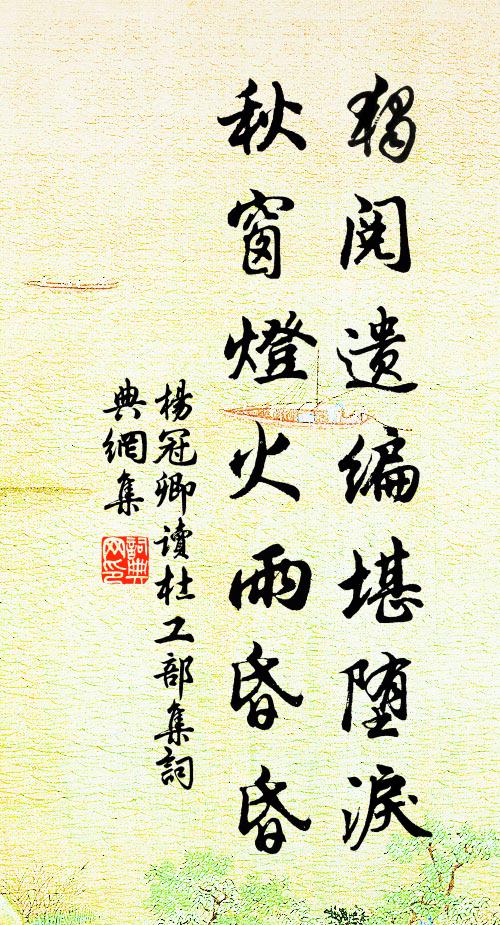 獨閱遺編堪墮淚
秋窗燈火雨昏昏
楊冠卿讀杜工部集詞
典網集
詞典
网印